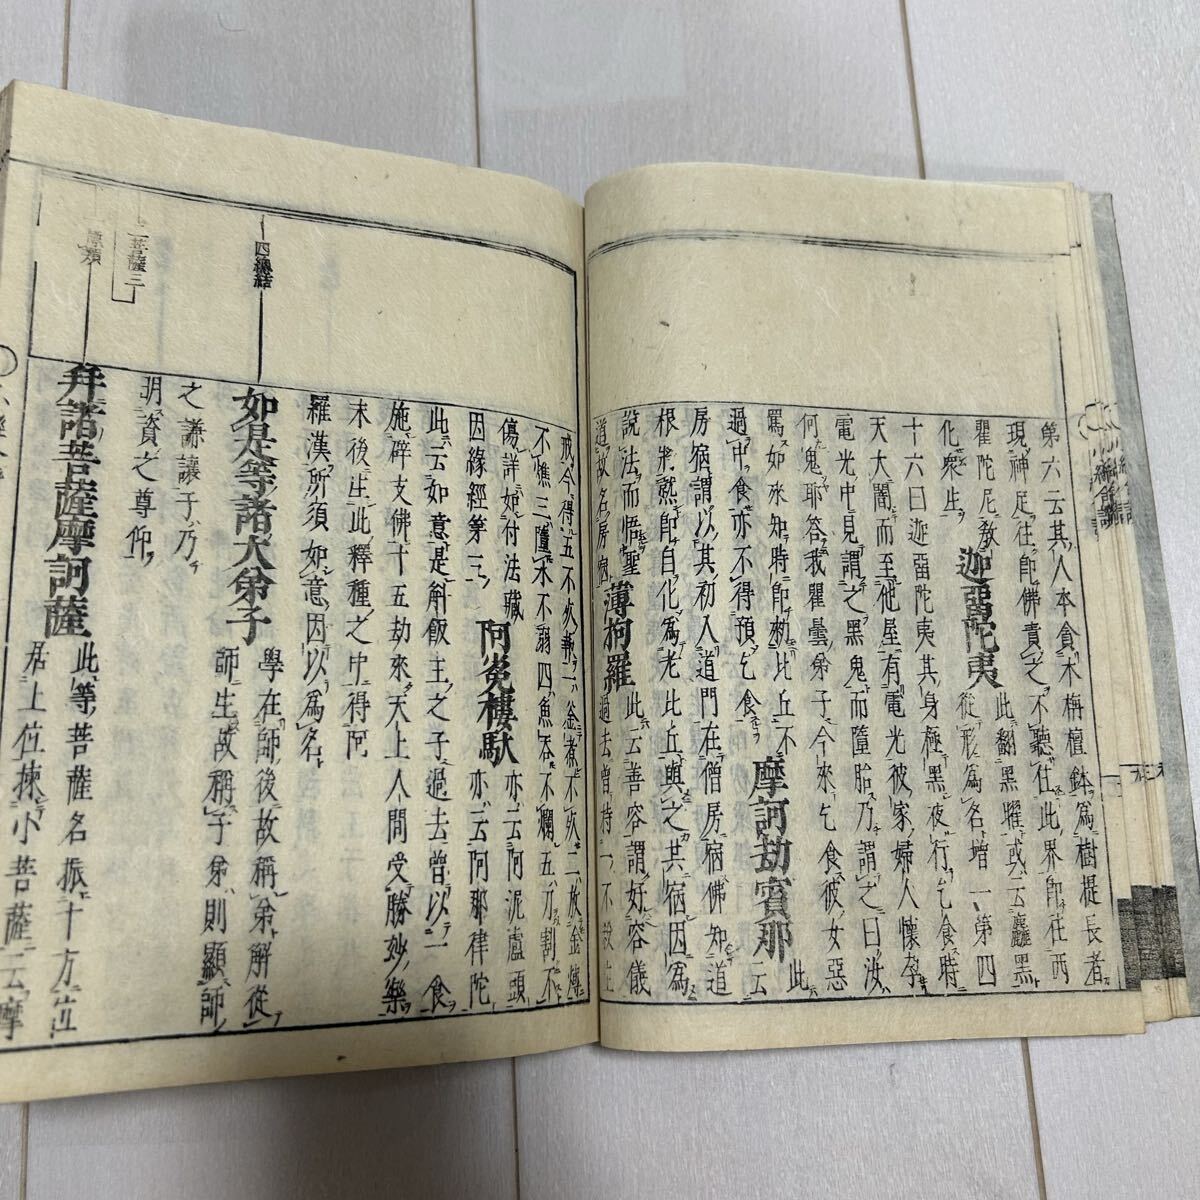 第六云其人本食木栴檀鉢爲樹提長者
現神足往卽佛責之不聽住此界卽往西
瞿陀尼敎
化衆生
迦畱陀夷
此翻黑曜或云麤黑
從形爲名增一第四
十六曰迦畱陀夷其身極黑夜行乞食時
天大闇而至他屋有電光彼家婦人懷孕
電光中見謂之黑鬼而墮胎乃謂之曰汝
何鬼耶答我瞿曇弟子今來乞食彼女惡
罵如來知時卽勑比丘不
過中食亦不得預乞食
摩訶劫賓那
此
云
房宿謂以其初入道門在僧房宿佛知道
根將熟卽自化爲老比丘與之共宿因爲
說法而悟聖
道故名房宿
薄拘羅
此云善容謂好容儀
過去曾持一不殺生
戒今得五不死報一釜煮不死二放金熥
不燋三墮水不溺四魚吞不爛五刀割不
傷詳如付法藏
因緣經第三
阿㝹樓馱
亦云阿泥盧頭
亦云阿那律陀
此云如意是斛飯王之子過去曾以一食
施辟支佛十五劫來天上人間受勝妙樂
末後生此釋種之中得阿
羅漢所須如意因以爲名
四總結
如是等諸大弟子
學在師後故稱弟解從
師生故稱子弟則顯師
之謙讓子乃
明資之尊仰
二菩薩三
標類
幷諸菩薩摩訶薩
此等菩薩名振十方位
居上位揀小菩薩云摩